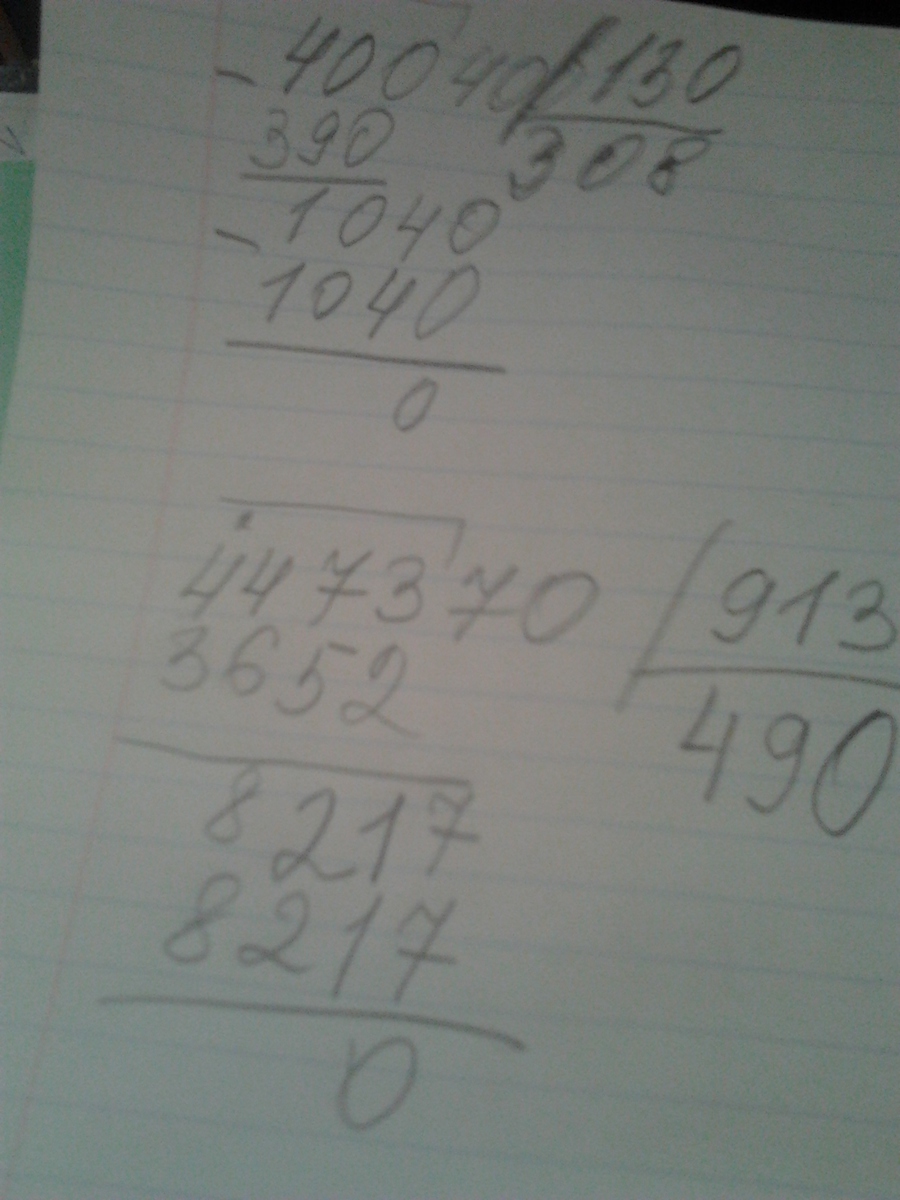 - 40040 130
390 308
- 1040
1040
0
447370 913
3652 490
8217
8217
0